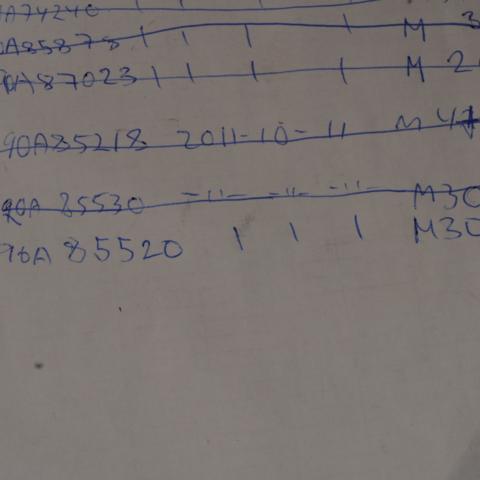 A74240 | | |
0A85878 | | | M 3
90A87023 | | | | M 2
90A85218 2011-10-11 M 47
90A 85530 -11- -11- -11- M30
96A 85520 | | | M30